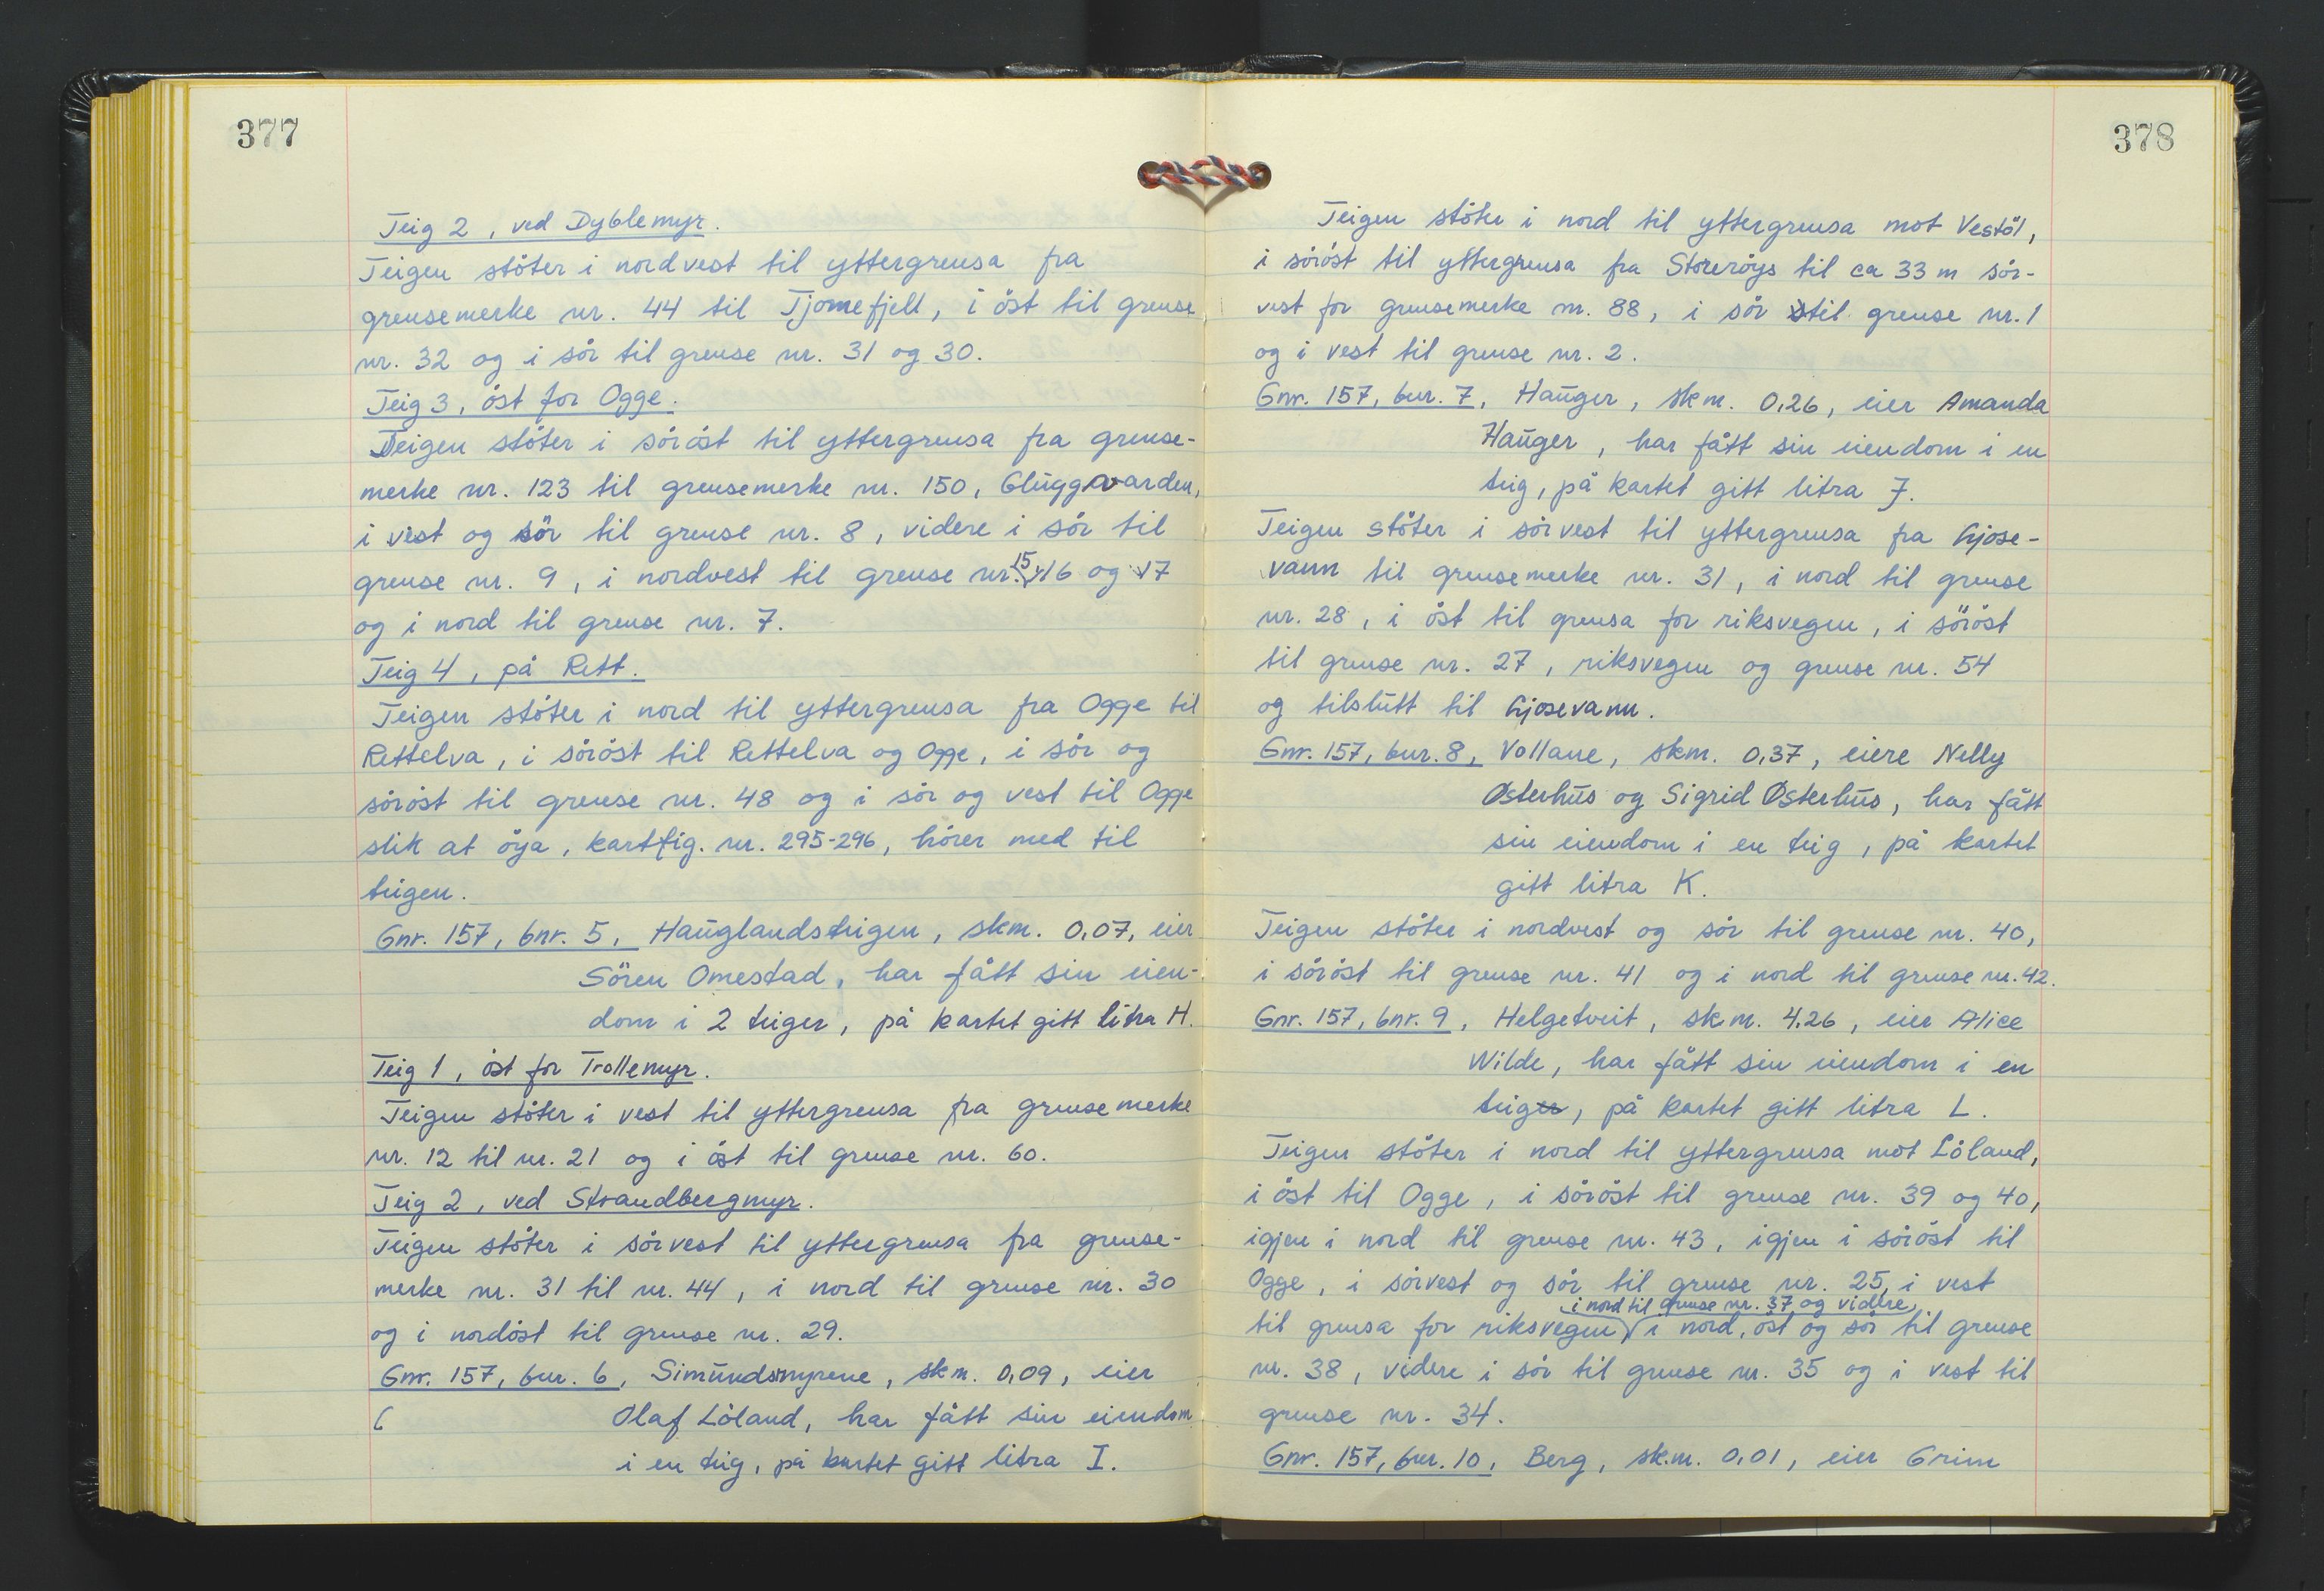 377
Teig 2, ved Dyblemyr.
Teigen stöter i nordvest til yttergrensa fra
grensemerke nr. 44 til Tjomefjell, i öst til grense
nr. 32 og i sör til grense nr. 31 og 30.
Teig 3, öst for Ogge.
Teigen stöter i söröst til yttergrensa fra grense-
merke nr. 123 til grensemerke nr. 150, Gluggvarden,
i vest og sör til grense nr. 8, videre i sör til
grense nr. 9, i nordvest til grense nr. 15, 16 og 17
og i nord til grense nr. 7.
Teig 4, på Rett.
Teigen stöter i nord til yttergrensa fra Ogge til
Rettelva, i söröst til Rettelva og Ogge, i sör og
söröst til grense nr. 48 og i sör og vest til Ogge
slik at öya, kartfig. nr. 295-296, hörer med til
teigen.
Gnr. 157, bnr. 5, Hauglandsteigen, skm. 0,07, eier
Sören Omestad, har fått sin eien-
dom i 2 teiger, på kartet gitt litra H.
Teig 1, öst for Trollemyr.
Teigen stöter i vest til yttergrensa fra grensemerke
nr. 12 til nr. 21 og i öst til grense nr. 60.
Teig 2, ved Strandbergmyr.
Teigen stöter i sörvest til yttergrensa fra grense-
merke nr. 31 til nr. 44, i nord til grense nr. 30
og i nordöst til grense nr. 29.
Gnr. 157, bnr. 6, Simundsmyrene, skm. 0,09, eier
Olaf Löland, har fått sin eiendom
i en teig, på kartet gitt litra I.
378
Teigen stöter i nord til yttergrensa mot Vestöl,
i söröst til yttergrensa fra Storeröys til ca 33 m sör-
vest for grensemerke nr. 88, i sör til grense nr. 1
og i vest til grense nr. 2.
Gnr. 157, bnr. 7, Hauger, skm. 0,26, eier Amanda
Hauger, har fått sin eiendom i en
teig, på kartet gitt litra J.
Teigen stöter i sörvest til yttergrensa fra Gjose-
vann til grensemerke nr. 31, i nord til grense
nr. 28, i öst til grensa for riksvegen, i söröst
til grense nr. 27, riksvegen og grense nr. 54
og tilslutt til Gjosevann.
Gnr. 157, bnr. 8, Vollane, skm. 0,37, eiere Nelly
Østerhus og Sigrid Østerhus, har fått
sin eiendom i en teig, på kartet
gitt litra K.
Teigen stöter i nordvest og sör til grense nr. 40,
i söröst til grense nr. 41 og i nord til grense nr. 42.
Gnr. 157, bnr. 9, Helgetveit, skm. 4,26, eier Alice
Wilde, har fått sin eiendom i en
teig, på kartet gitt litra L.
Teigen stöter i nord til yttergrensa mot Löland,
i öst til Ogge, i söröst til grense nr. 39 og 40,
igjen i nord til grense nr. 43, igjen i söröst til
Ogge, i sörvest og sör til grense nr. 25, i vest
i nord til grense nr. 37 og videre
til grensa for riksvegen, i nord, öst og sör til grense
nr. 38, videre i sör til grense nr. 35 og i vest til
grense nr. 34.
Gnr. 157, bnr. 10, Berg, sk.m. 0,01, eier Grim